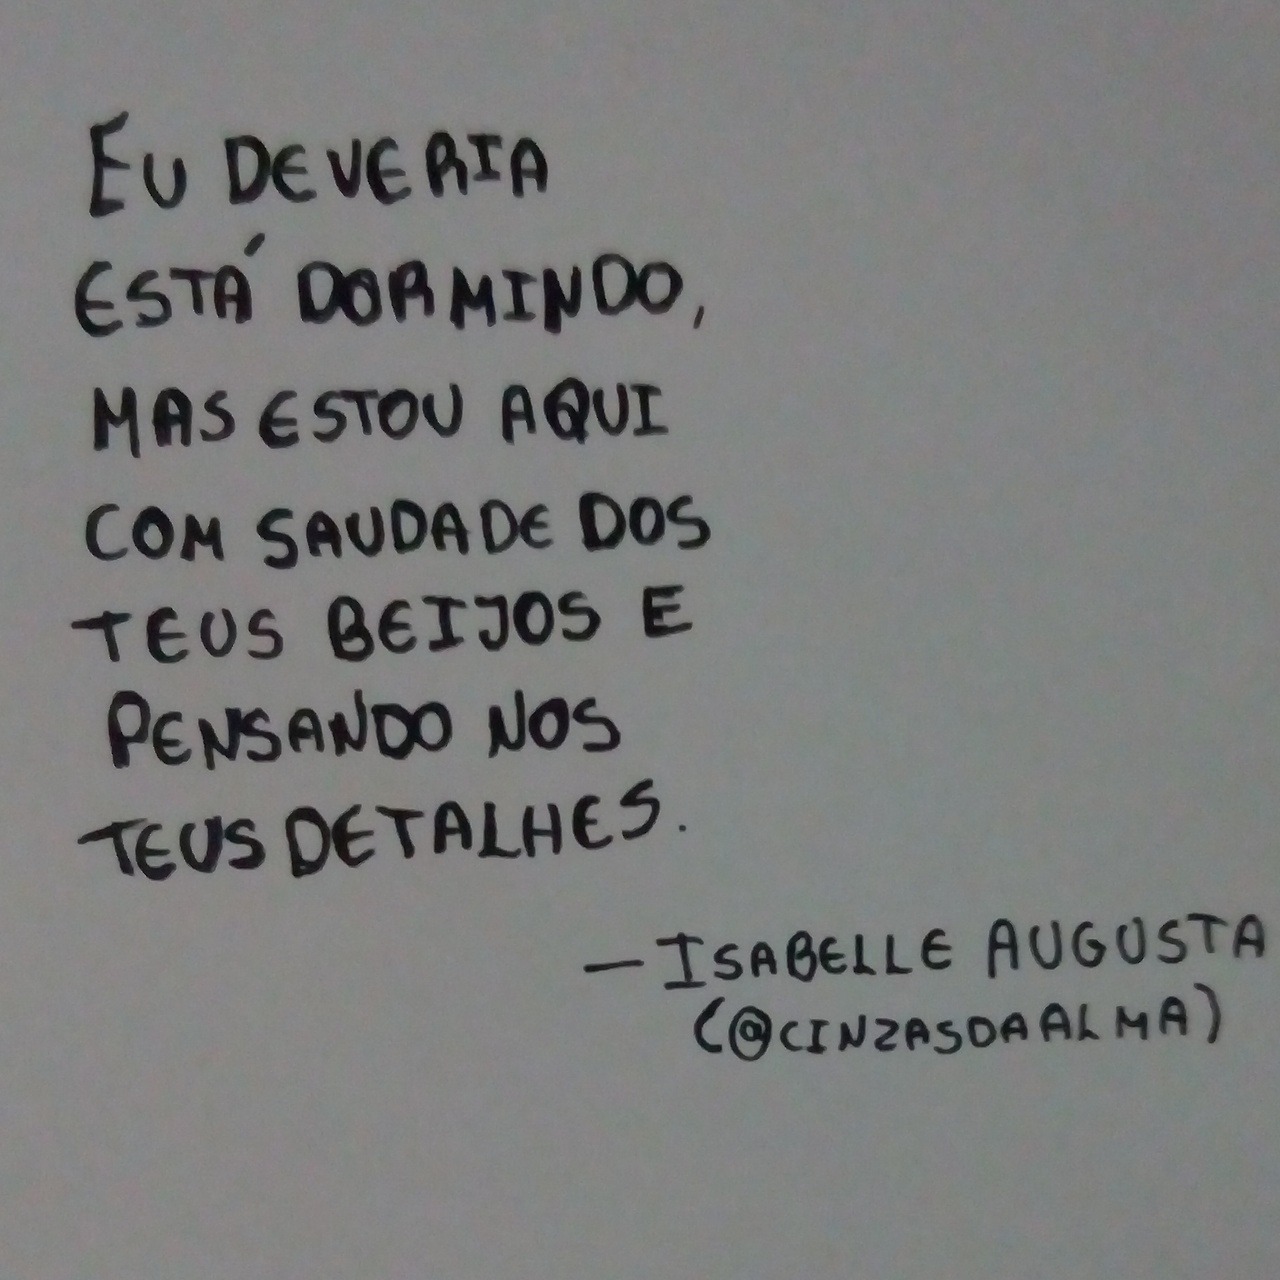 EU DEVERIA
ESTÁ DORMINDO,
MAS ESTOU AQUI
COM SAUDADE DOS
TEUS BEIJOS E
PENSANDO NOS
TEUS DETALHES.
— ISABELLE AUGUSTA
(@CINZASDAALMA)